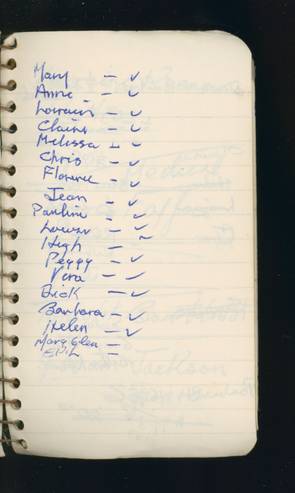 Mary - ✓
Anne - ✓
Lorrain - ✓
Claire - ✓
Melissa - ✓
Chris - ✓
Florence - ✓
Jean - ✓
Pauline - ✓
- ✓
Hugh - ~
Peggy - ✓
Vera - ✓
Dick - ✓
Barbara - ✓
Helen - ✓
Mary Ellen -
-